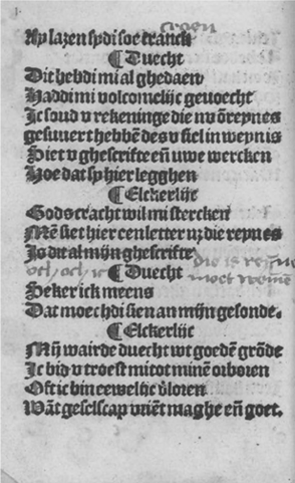 Ay lazen sydi soe cranck
¶ Duecht
Dit hebdi mi al ghedaen
Haddi mi volcomelijc gevoecht
Ic sou d v rekeninge die nv ōreynes
gesuvert hebbē des v siel in weyn is
Siet v ghescrifte eñ uwe wercken
Hoe dat sy hier legghen
¶ Elckerlijc
Gods cracht wil mi stercken
Mē siet hier een letter nz die reyn es
Is dit al mijn ghescrifte
¶ Duecht
Seker ick meens
Dat moechdi sien an mijn gesonde.
¶ Elckerlijc
Mij wairde duecht wt goedē grōde
Ic bid v troest mi tot minē orboren
Oft ic bin eewelijc v̄loren
Wāt geselscap vriēt maghe eñ goet.